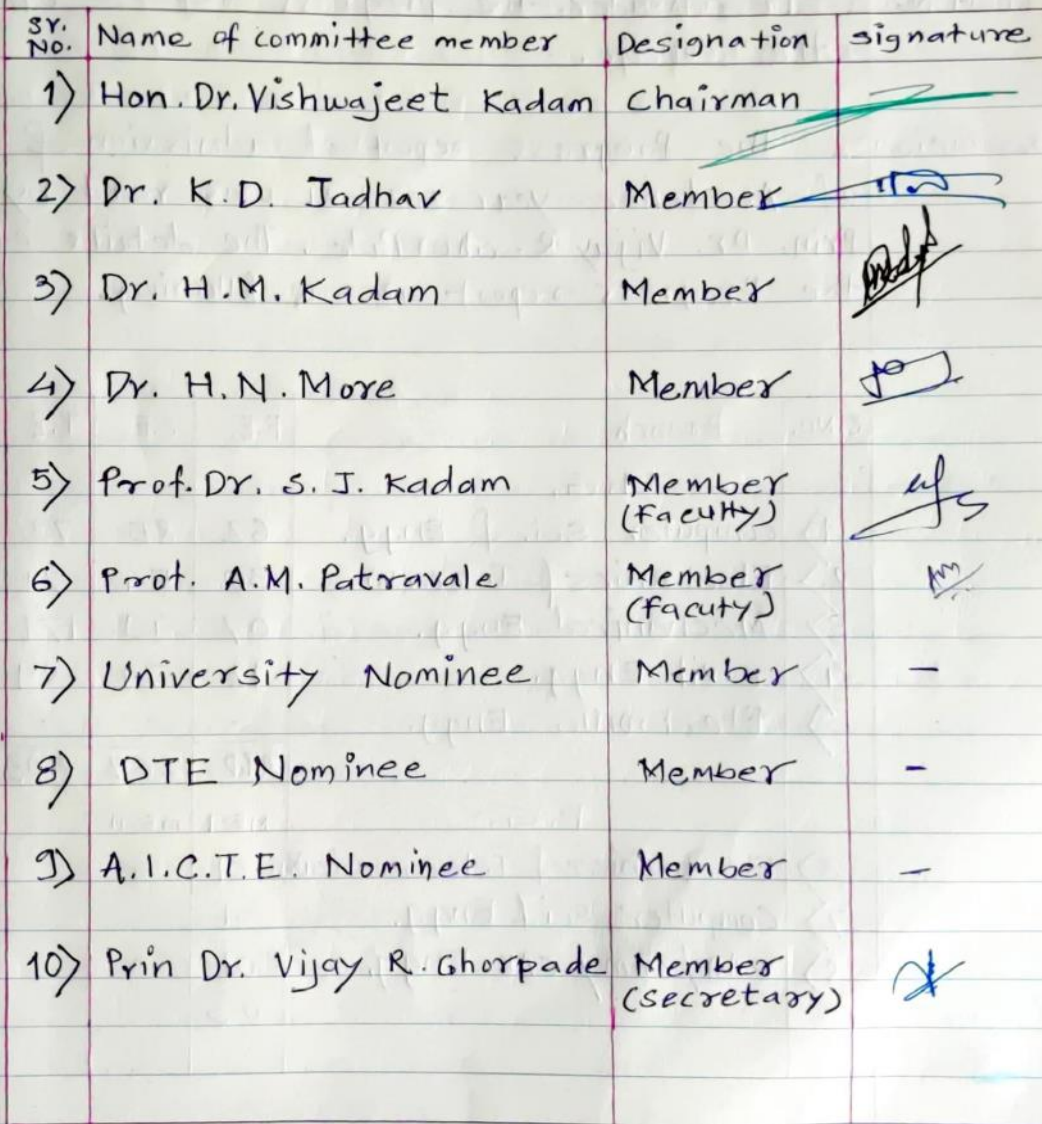 Sr. No. Name of committee member Designation signature
1) Hon. Dr. Vishwajeet Kadam Chairman
2) Dr. K.D. Jadhav Member
3) Dr. H.M. Kadam Member
4) Dr. H.N. More Member
5) Prof. Dr. S. J. Kadam Member
(faculty)
6) Prof. A.M. Patravale Member
(facuty)
7) University Nominee Member -
8) DTE Nominee Member -
9) A.I.C.T.E. Nominee Member -
10) Prin Dr. Vijay R. Ghorpade Member
(secretary)